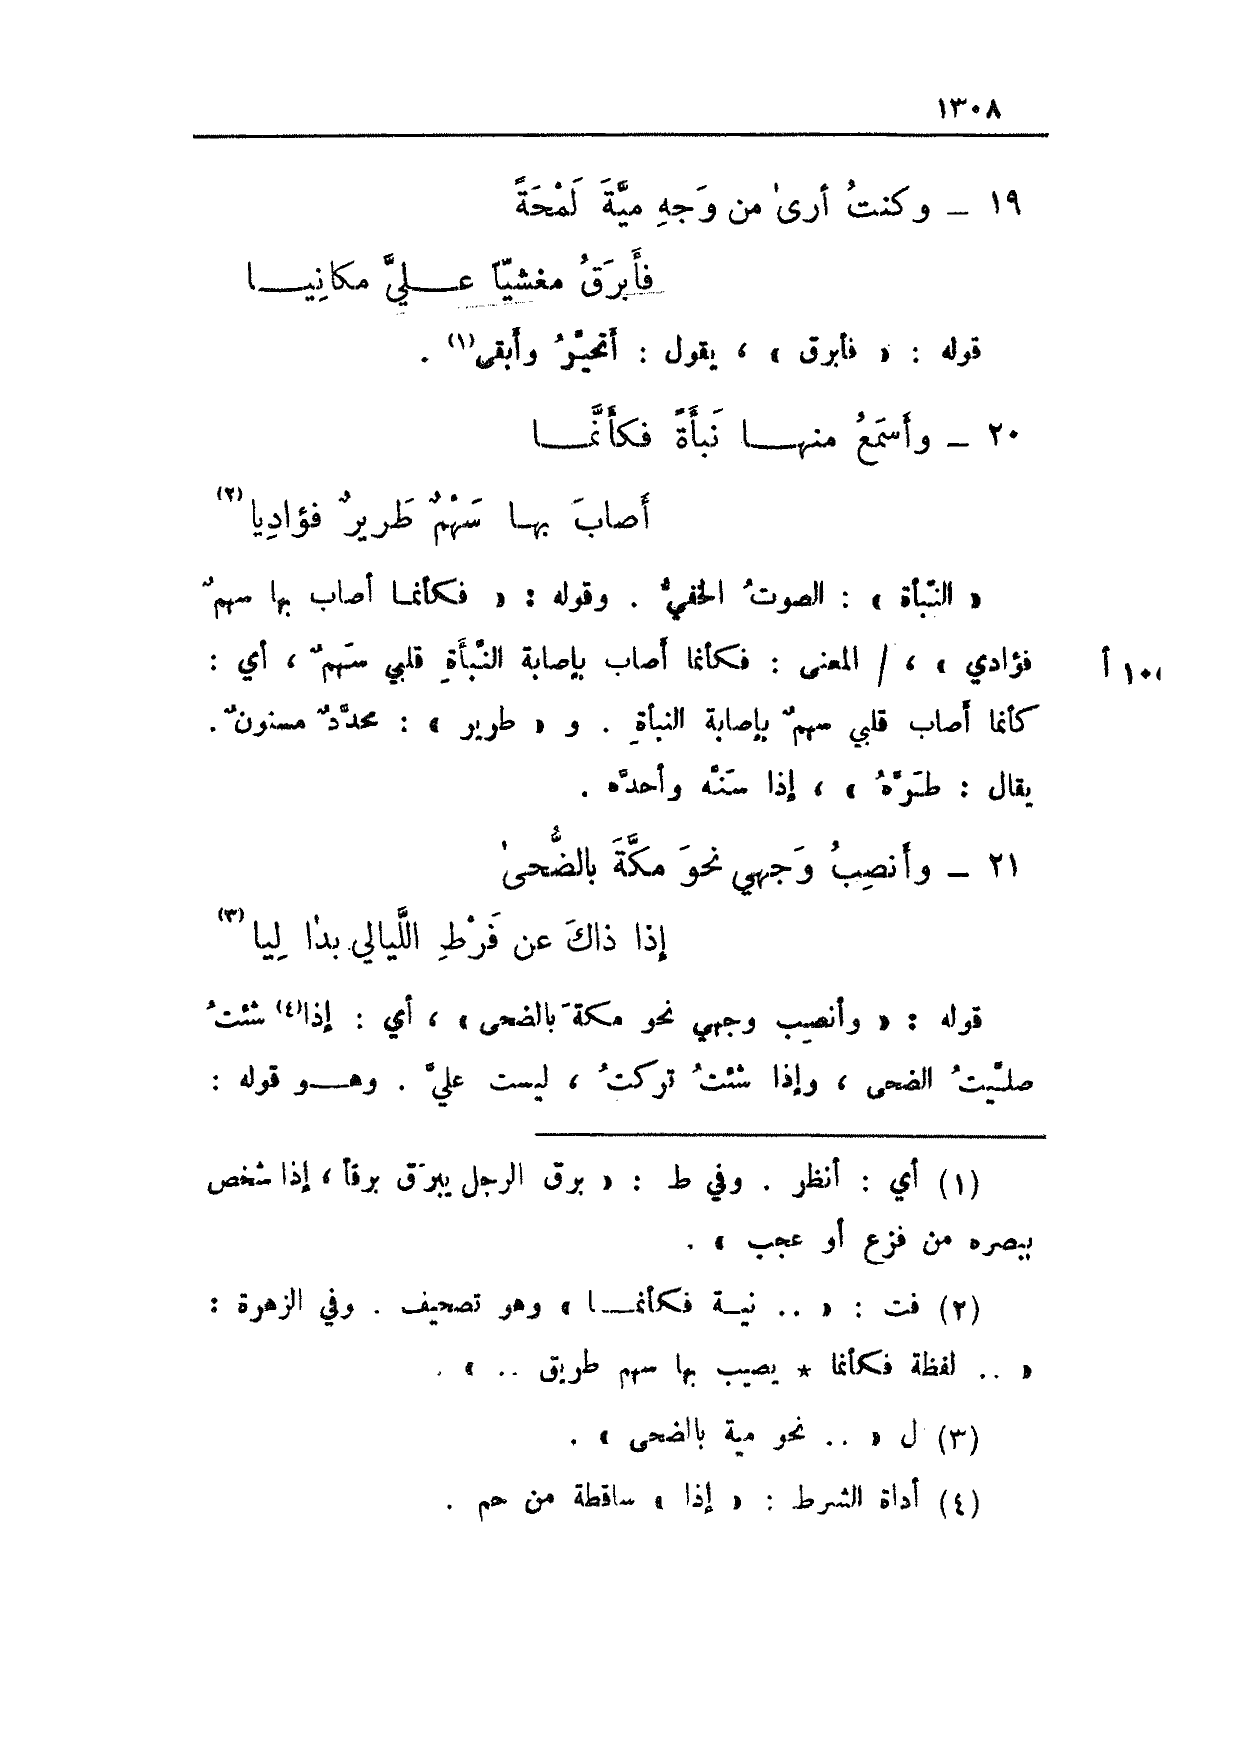 ١٣٠٨
١٩ ـ وكنتُ أرىٰ من وَجهِ ميَّةَ لَمْحَةً
فأَبرَقُ مغشيّاً عليَّ مكانِيا
قوله : « فأبرق » ، يقول : أتحيَّرُ وأَبقى(١) .
٢٠ ـ وأَسمَعُ منها نَبأَةً فكأَنَّما
أَصابَ بها سَهْمٌ طَريرٌ فؤادِيا(٢)
« النّبأة » : الصوتُ الخفيُّ . وقوله : « فكأنما أصاب بها سهمٌ
فؤادي » ، / المعنى : فكأنما أَصاب بإصابة النّبأَةِ قلبي سَهمٌ ، أي :
كأنما أَصاب قلبي سهمٌ بإصابة النبأةِ . و « طرير » : محدَّدٌ مسنونٌ .
١٠٠ أ
يقال : طَرَّهُ » ، إذا سَنّه وأحدَّه .
٢١ ـ وأَنصِبُ وَجهي نحوَ مكَّةَ بالضُّحىٰ
إذا ذاكَ عن فَرْطِ اللَّيالي بدا لِيا(٣)
قوله : « وأنصِب وجهي نحو مكةَ بالضحى » ، أي : إذا(٤) شئتُ
صلَّيتُ الضحى ، وإذا شئتُ تركتُ ، ليست عليَّ . وهو قوله :
(١) أي : أنظر . وفي ط : « برق الرجل يبرَق برقاً ، إذا شخص
ببصره من فزع أو عجب » .
(٢) فت : « .. نية فكأنما » وهو تصحيف . وفي الزهرة :
« .. لفظة فكأنما * يصيب بها سهم طريق .. » .
(٣) ل « .. نحو مية بالضحى » .
(٤) أداة الشرط : « إذا » ساقطة من حم .